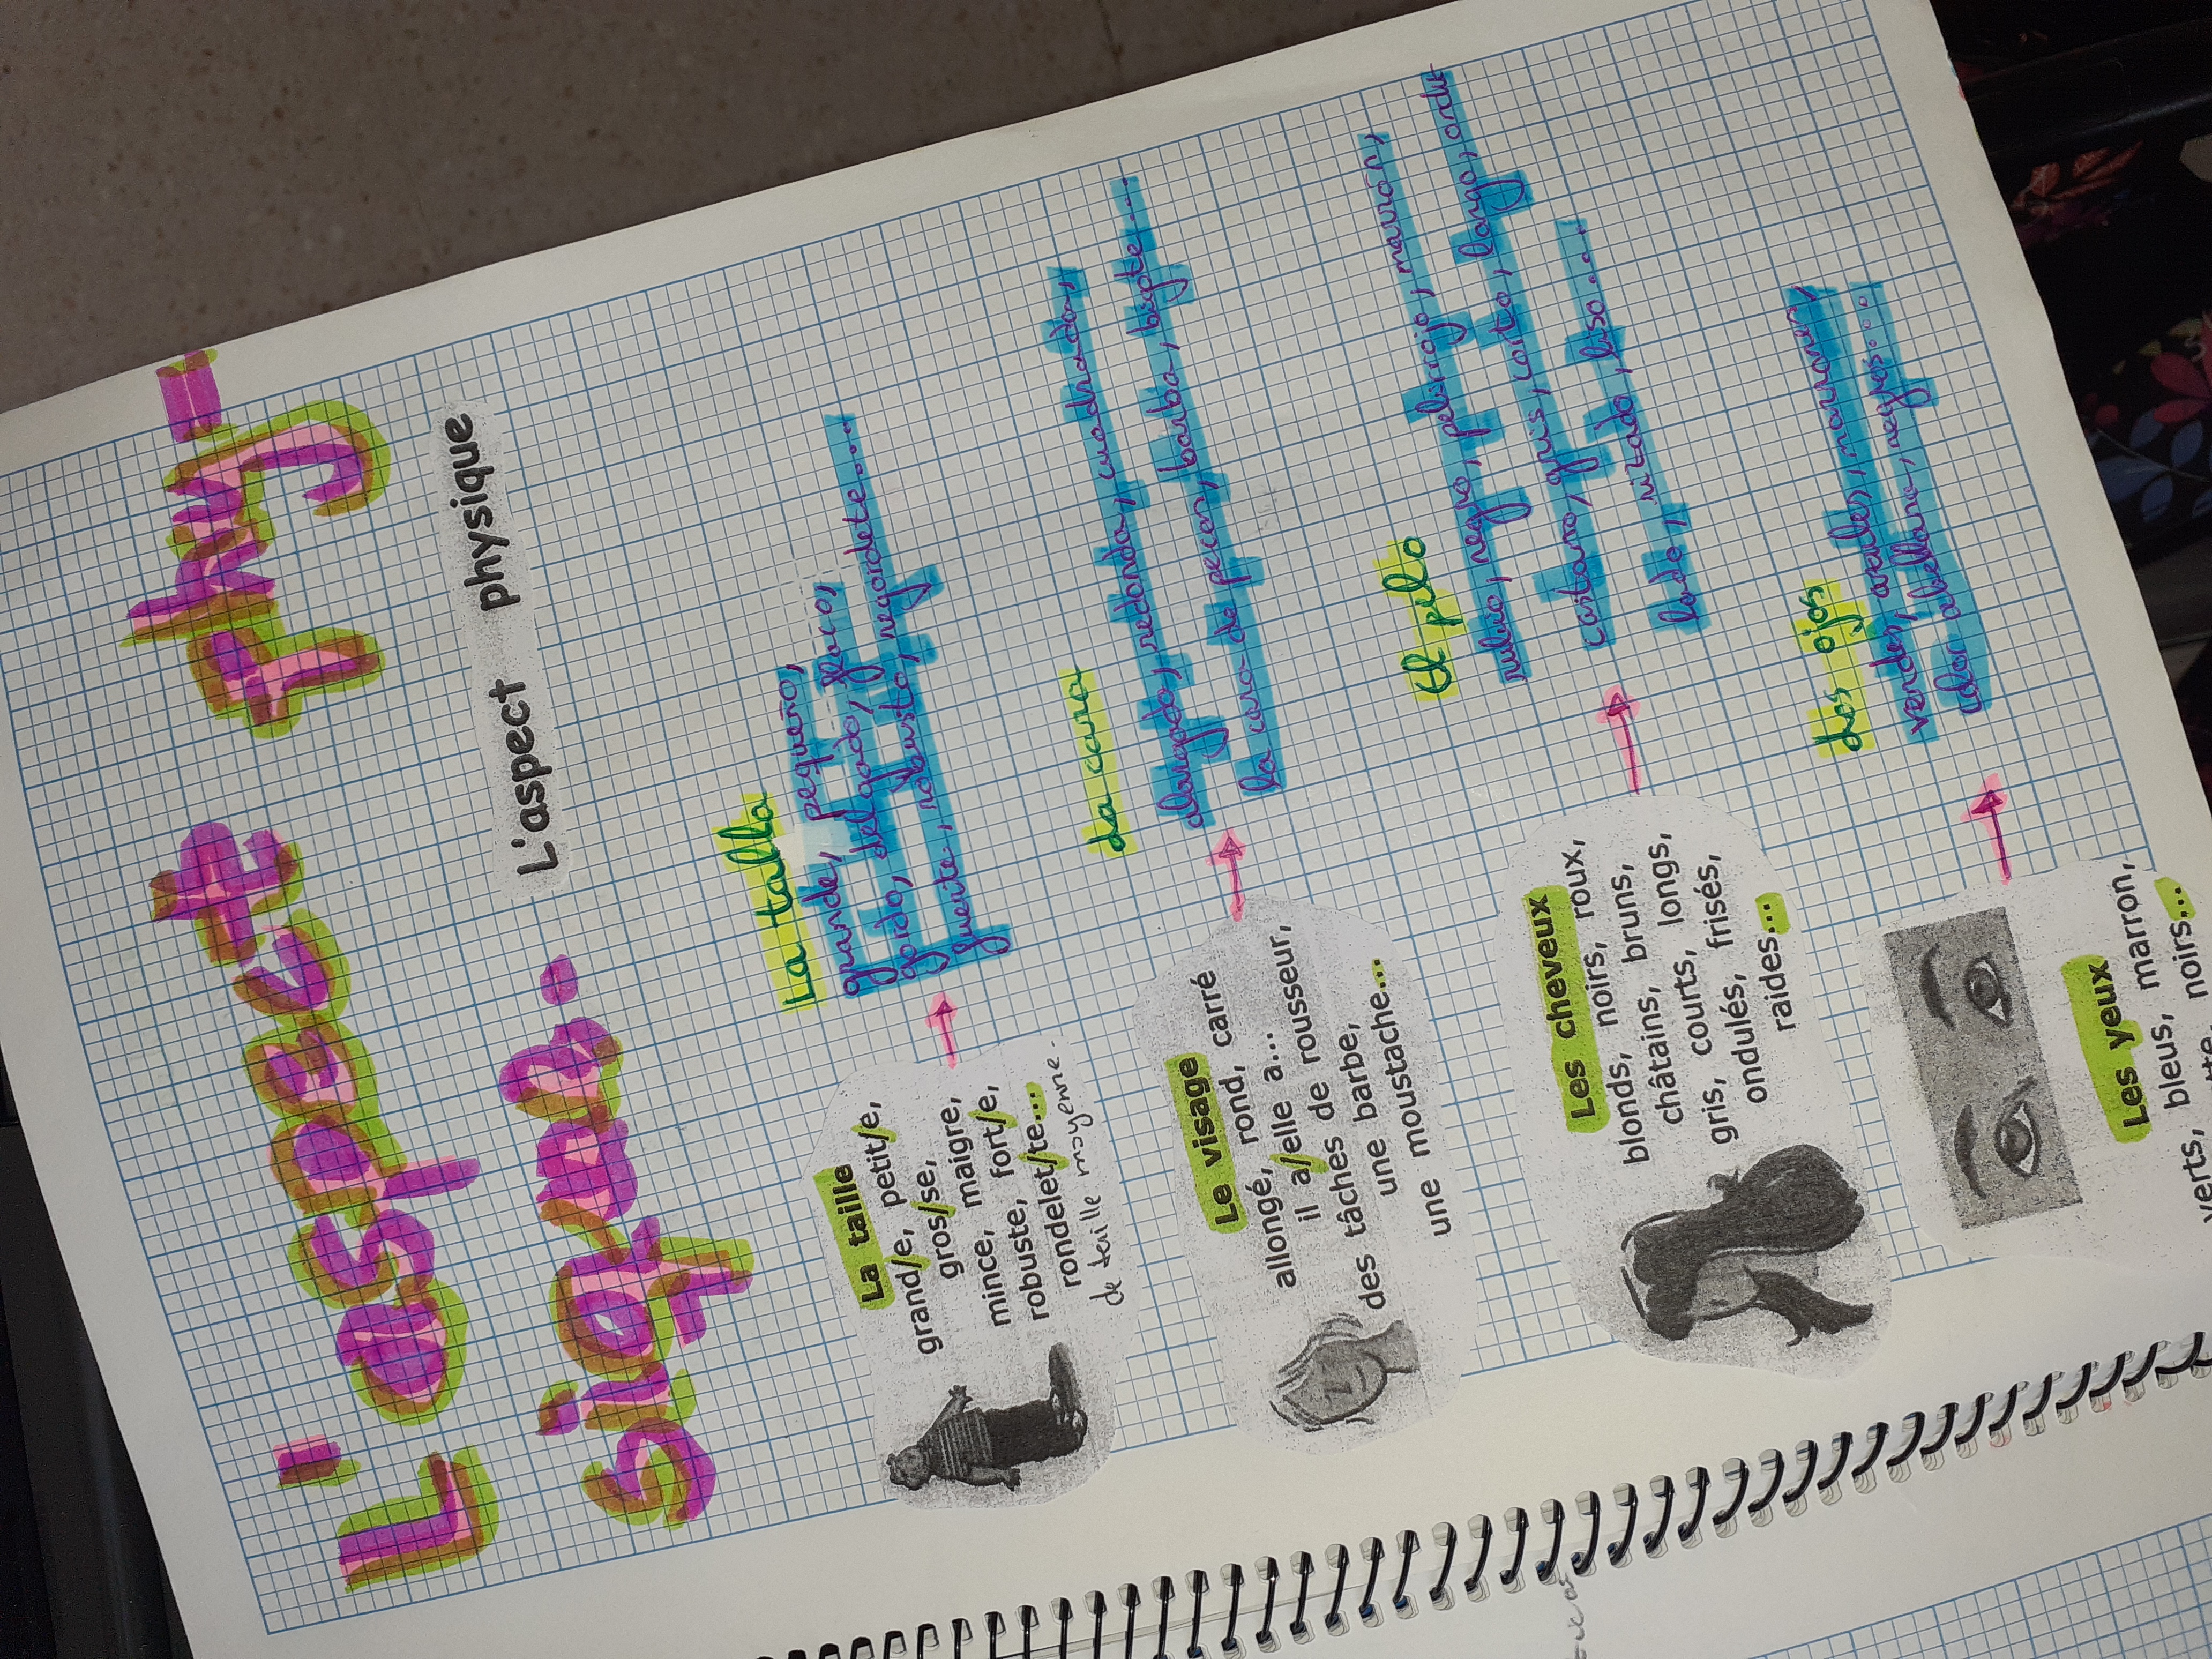 L'aspect Thy-
sique.
L'aspect physique
La taille
grand/e, petit/e,
gros/se,
mince, maigre,
robuste, fort/e,
rondelet/te...
de taille moyenne.
La talla
grande, pequeño,
gordo, delgado, flaco,
fuerte, robusto, regordete....
Le visage
allongé, rond, carré
il a/elle a...
des tâches de rousseur,
une barbe,
une moustache...
La cara
alargado, redonda, cuadrada,
la cara de pecas, barba, bigote....
Les cheveux
blonds, noirs, roux,
châtains, bruns,
gris, courts, longs,
ondulés, frisés,
raides...
El pelo
rubio, negro, pelirrojo, marrón,
castaño, gris, corto, largo, ondu-
lado, rizado, liso....
Les yeux
verts, bleus, marron,
noirs...
Los ojos
verdes, azules, marrones,
color abellana, negros...